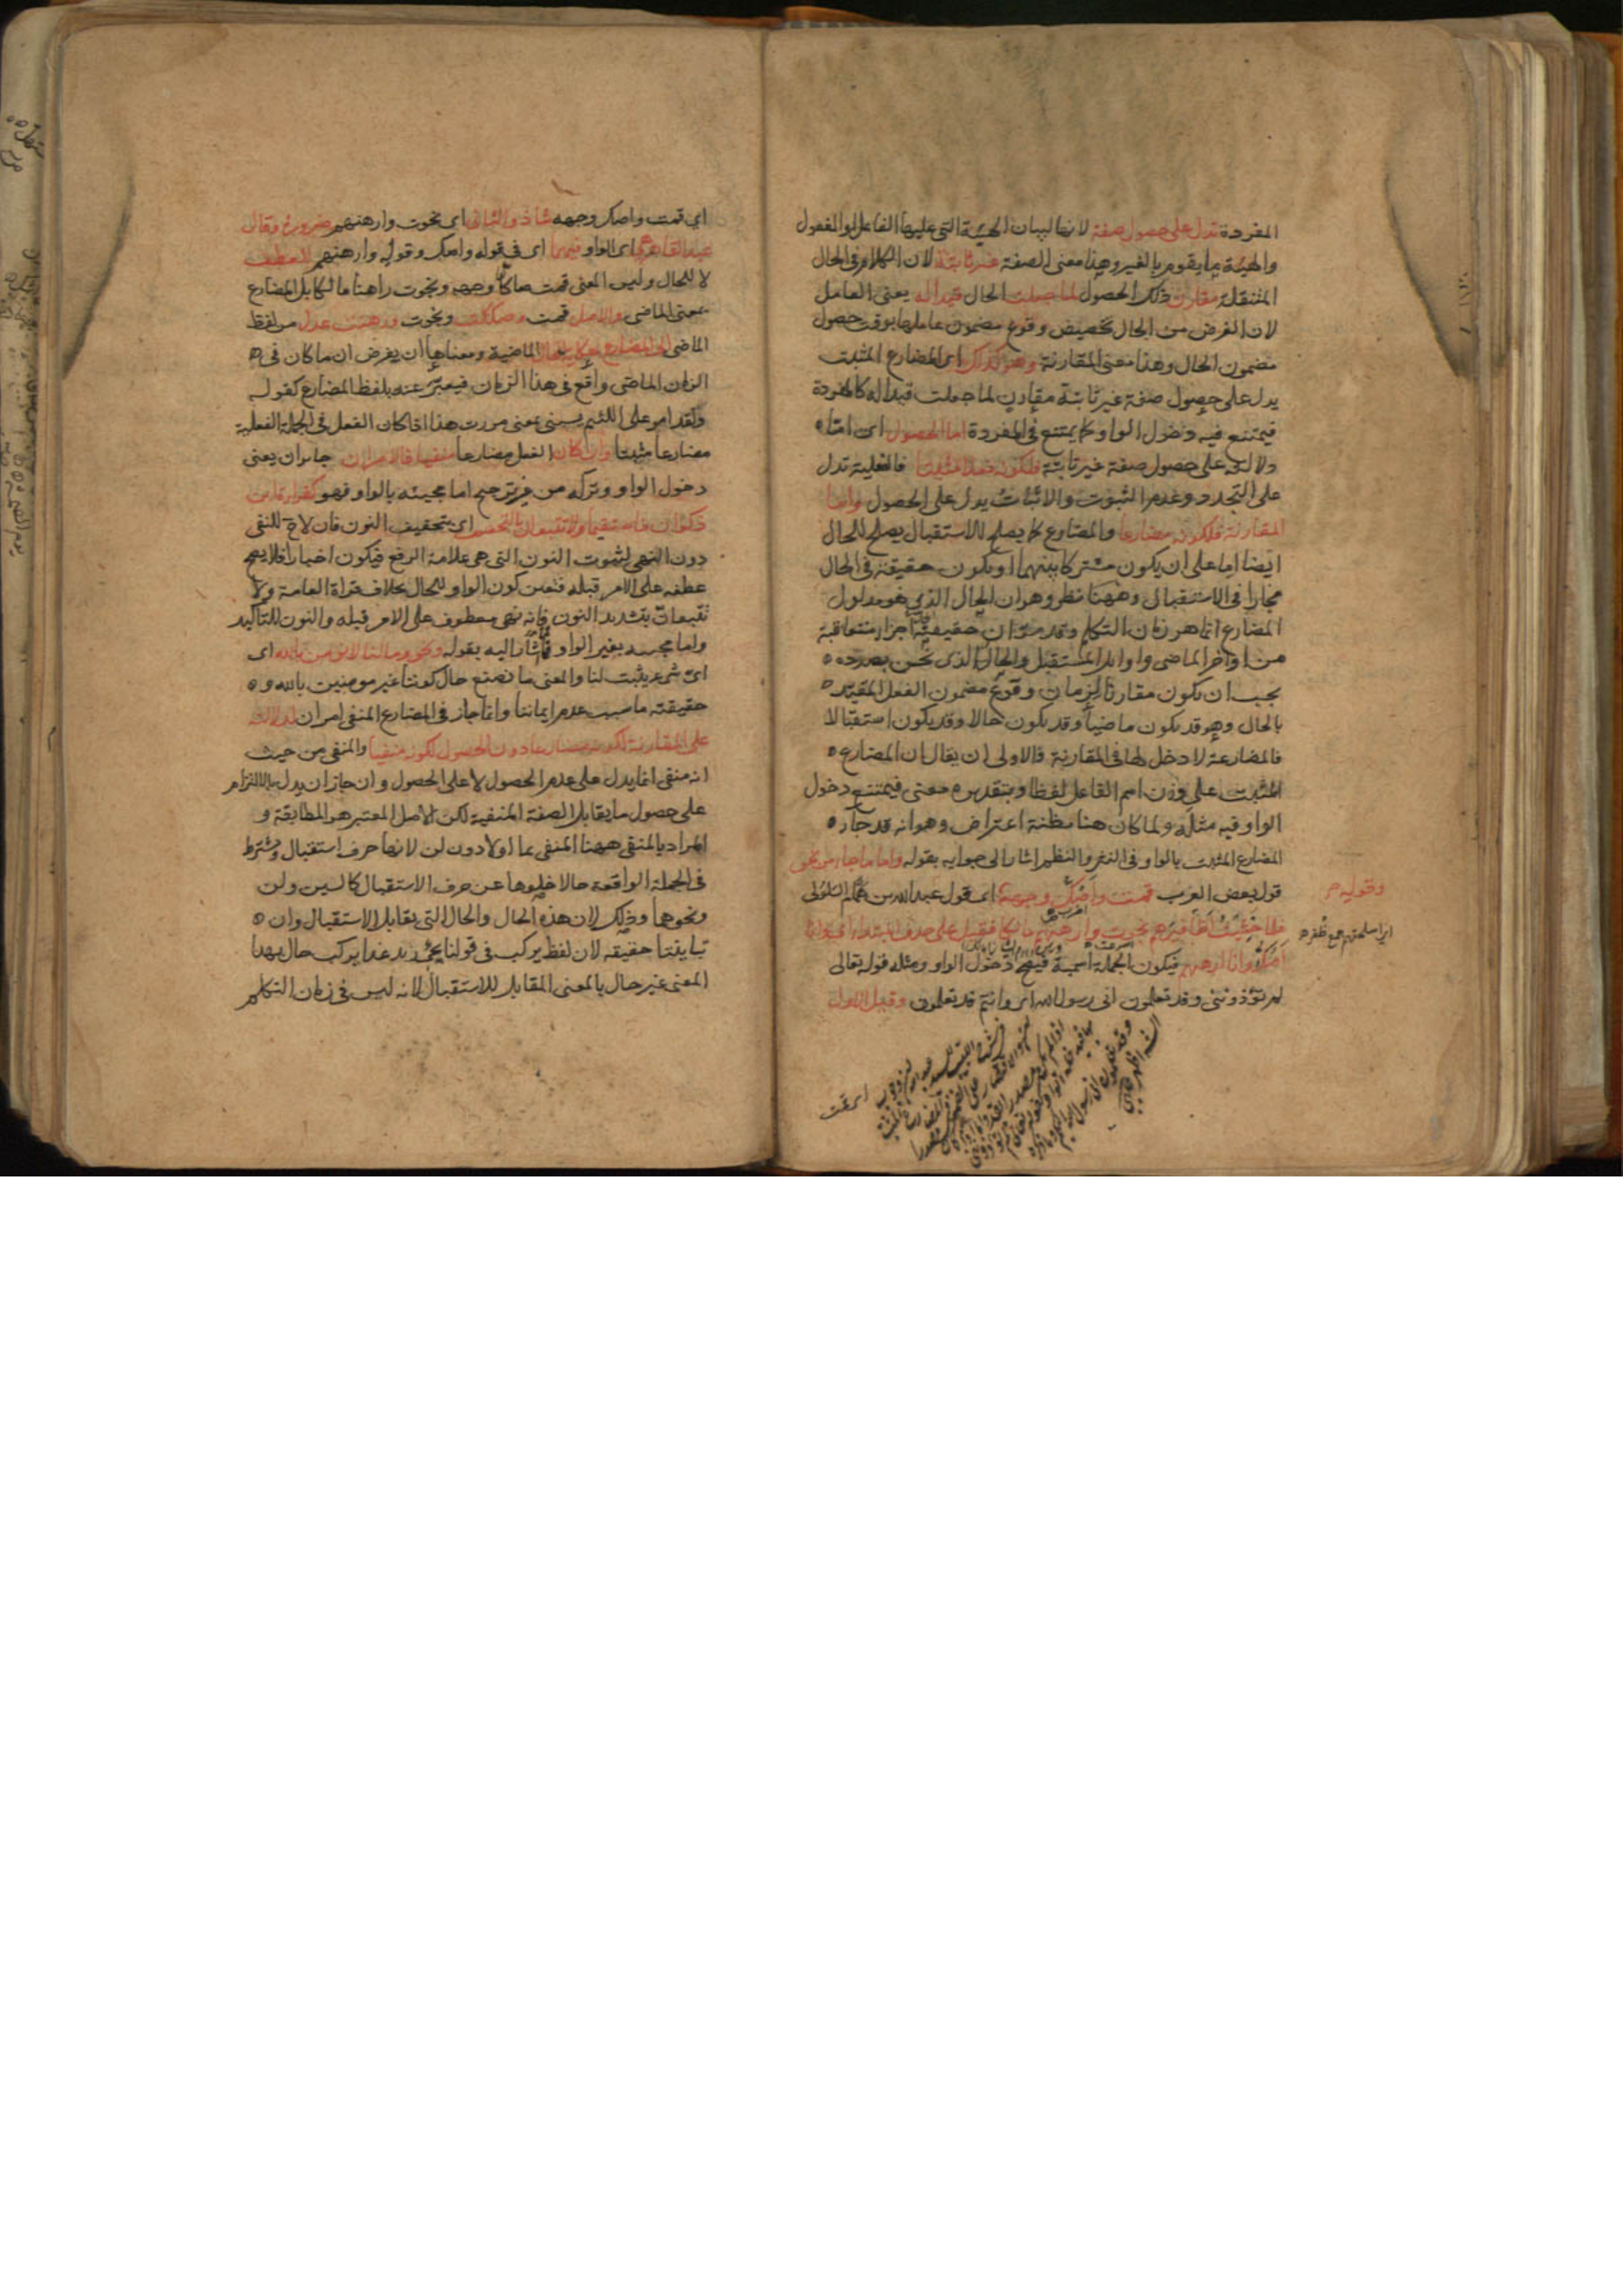 المفردة تدل على حصول صفة لانها لبيان الهيئة التى عليها الفاعل او المفعول
والهيئة ما يقوم بالغير وهذا معنى الصفة غير ثابتة لان الكلام فى الحال
المنتقلة مقارن ذلك الحصول لما جعلت الحال قيدا له يعنى العامل
لان الغرض من الحال تخصيص وقوع مضمون عاملها بوقت حصول
مضمون الحال وهذا معنى المقارنة وهو كذلك اى المضارع المثبت
يدل على حصول صفة غير ثابتة مقارن لما جعلت قيدا له كالمفردة
فيمتنع فيه دخول الواو كما يمتنع فى المفردة اما الحصول اى اما
دلالته على حصول صفة غير ثابتة فلكونه فعلا مثبتا فالفعلية تدل
على التجدد وعدم الثبوت والاثبات يدل على الحصول واما
المقارنة فلكونه مضارعا والمضارع كما يصلح للاستقبال يصلح للحال
ايضا اما على ان يكون مشتركا بينهما او يكون حقيقة فى الحال
مجازا فى الاستقبال وههنا نظر وهو ان الحال الذى هو مدلول
المضارع انما هو زمان التكلم وقد مر ان حقيقته اجزاء متعاقبة
من اواخر الماضى واوايل المستقبل والحال الذى نحن بصدده
يجب ان يكون مقارنا لزمان وقوع مضمون الفعل المقيد
بالحال وهو قد يكون ماضيا وقد يكون حالا وقد يكون استقبالا
فالمضارعة لا دخل لها فى المقارنة فالاولى ان يقال ان المضارع
المثبت على وزن اسم الفاعل لفظا وبتقديره معنى فيمتنع دخول
الواو فيه مثله ولما كان هنا مظنة اعتراض وهو انه قد جاء
المضارع المثبت بالواو فى النثر والنظم اشار الى جوابه بقوله واما ما جاء من نحو
قول بعض العرب قمت واصك وجهه اى قول عبد الله بن همام السلولى
وقوله
فلما خشيت اظافيرهم نجوت وارهنهم مالكا فقيل على حذف المبتداء اى وانا
اى اسلحتهم جمع ظفر
اصك وانا ارهنهم فيكون الجملة اسمية فيصح دخول الواو ومثله قوله تعالى
لم تؤذوننى وقد تعلمون انى رسول الله اى وانتم قد تعلمون وقيل الاول
اى قمت واصك وجهه شاذ والثانى اى نجوت وارهنهم ضرورة وقال
عبد القاهر هى اى الواو فيهما اى فى قوله واصك وقوله وارهنهم للعطف
لا للحال وليس المعنى قمت صاكا وجهه ونجوت راهنا مالكا بل المضارع
بمعنى الماضى والاصل قمت وصككت ونجوت ورهنت عدل من لفظ
الماضى الى المضارع حكاية للحال الماضية ومعناها ان يفرض ان ما كان فى
الزمان الماضى واقع فى هذا الزمان فيعبر عنه بلفظ المضارع كقوله
ولقد امر على اللئيم يسبنى بمعنى مررت هذا اذا كان الفعل فى الجملة الفعلية
مضارعا مثبتا وان كان الفعل مضارعا منفيا فالامران جايزان يعنى
دخول الواو وتركه من غير ترجيح اما مجيئه بالواو فهو كقراءة ابن
ذكوان فاستقيما ولا تتبعان بالتخفيف اى بتخفيف النون فان لا ح للنفى
دون النهى لثبوت النون التى هى علامة الرفع فيكون اخبارا فلا يصح
عطفه على الامر قبله فتعين كون الواو للحال بخلاف قراءة العامة ولا
تتبعان بتشديد النون فانه نهى معطوف على الامر قبله والنون للتاكيد
واما مجيئه بغير الواو فاشار اليه بقوله ونحو وما لنا لا نؤمن بالله اى
اى شىء يثبت لنا والمعنى ما نصنع حال كوننا غير مومنين بالله و
حقيقته ما سبب عدم ايماننا وانما جاز فى المضارع المنفى امران لدلالته
على المقارنة لكونه مضارعا دون الحصول لكونه منفيا والمنفى من حيث
انه منفى انما يدل على عدم الحصول لا على الحصول وان جاز ان يدل بالالتزام
على حصول ما يقابل الصفة المنفية لكن الاصل المعتبر هو المطابقة و
المراد بالمنفى ههنا المنفى بما او لا دون لن لانها حرف استقبال ويشترط
فى الجملة الواقعة حالا خلوها عن حرف الاستقبال كالسين ولن
ونحوهما وذلك لان هذه الحال والحال التى يقابل الاستقبال وان
تباينتا حقيقة لان لفظ يركب فى قولنا يجئ زيد غدا يركب حال بهذا
المعنى غير حال بالمعنى المقابل للاستقبال لانه ليس فى زمان التكلم